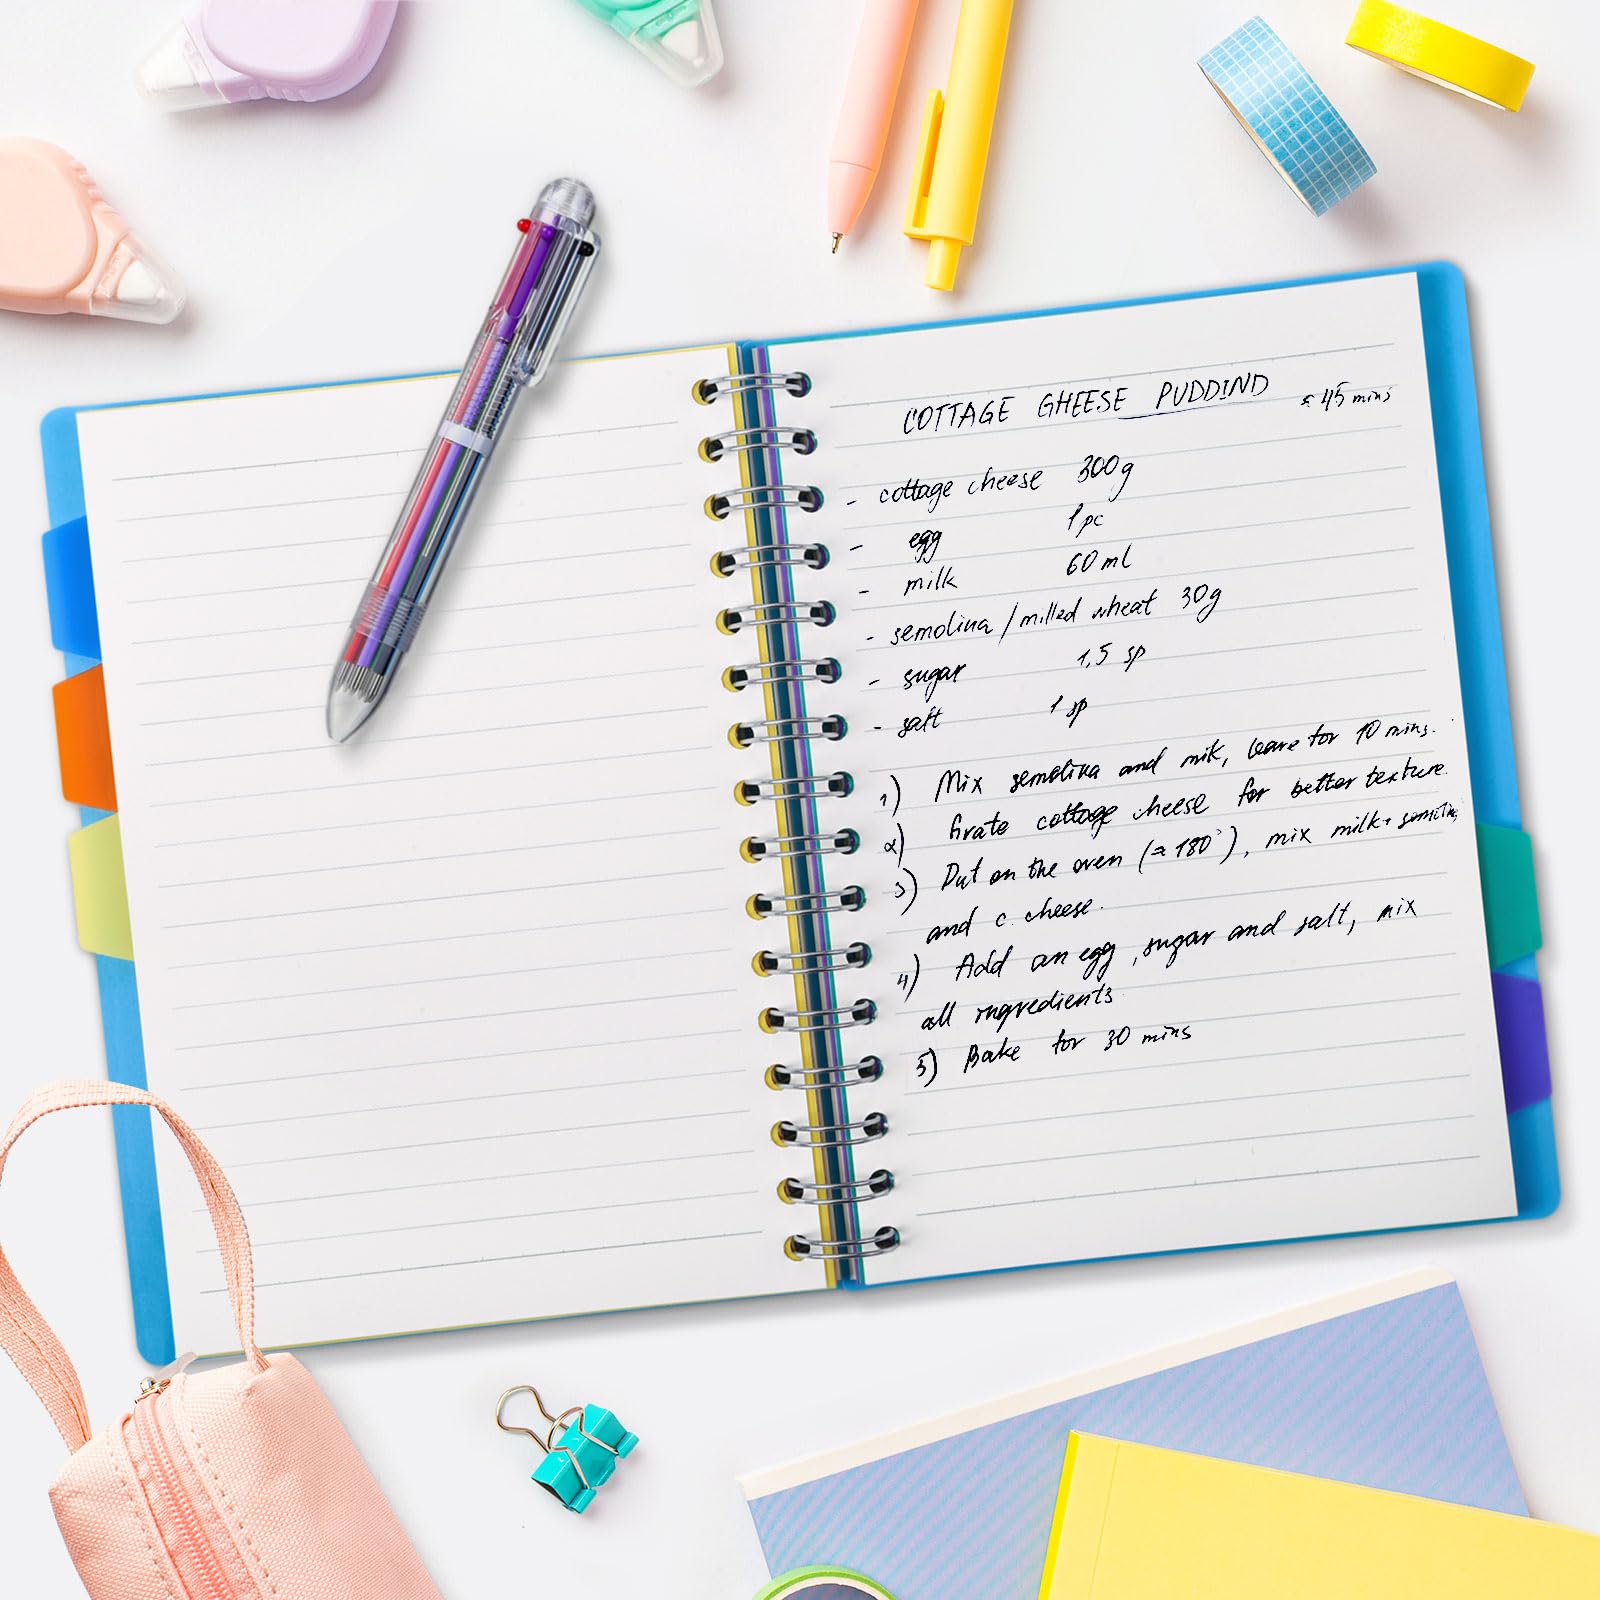 COTTAGE GHEESE PUDDIND ≈ 45 mins
- cottage cheese 300g
- egg 1 pc
- milk 60 ml
- semolina / milled wheat 30g
- sugar 1,5 sp
- salt 1 sp
1) Mix semolina and mik, leave for 10 mins.
2) Grate cottage cheese for better texture.
3) Put on the oven (≈ 180°), mix milk + semolina
and c. cheese.
4) Add an egg, sugar and salt, mix
all ingredients
5) Bake for 30 mins